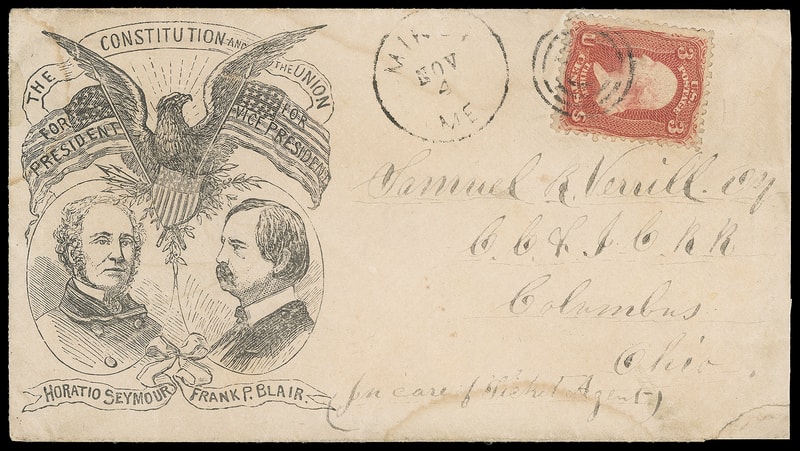 THE CONSTITUTION AND THE UNION
FOR PRESIDENT
FOR VICE PRESIDENT
HORATIO SEYMOUR
FRANK P. BLAIR.
NOV
4
ME
U S
3 3
U.S. POSTAGE
THREE CENTS
Samuel Verrill.
C. C. & I. C. R R
Columbus
Ohio
(In care of Ticket Agent)